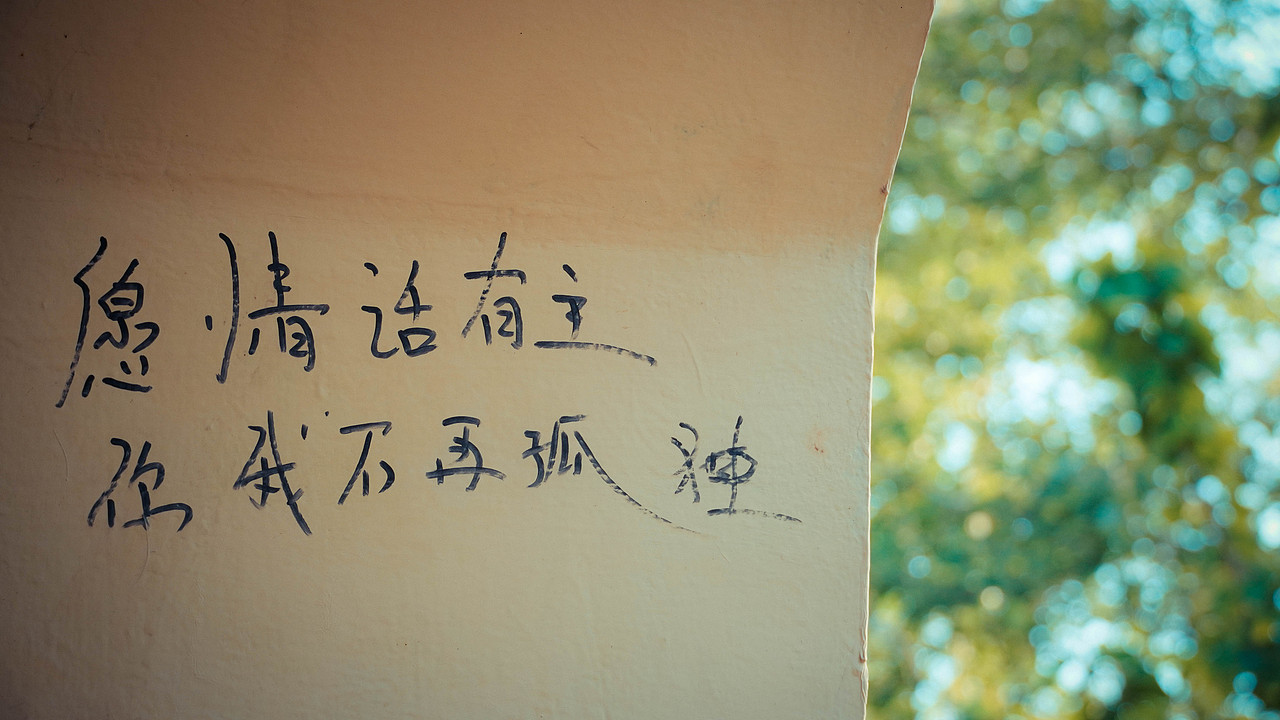 愿情话有主
你我不再孤独